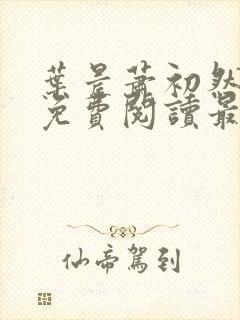 葉晨蕭初然
免費閱讀最
仙帝駕到